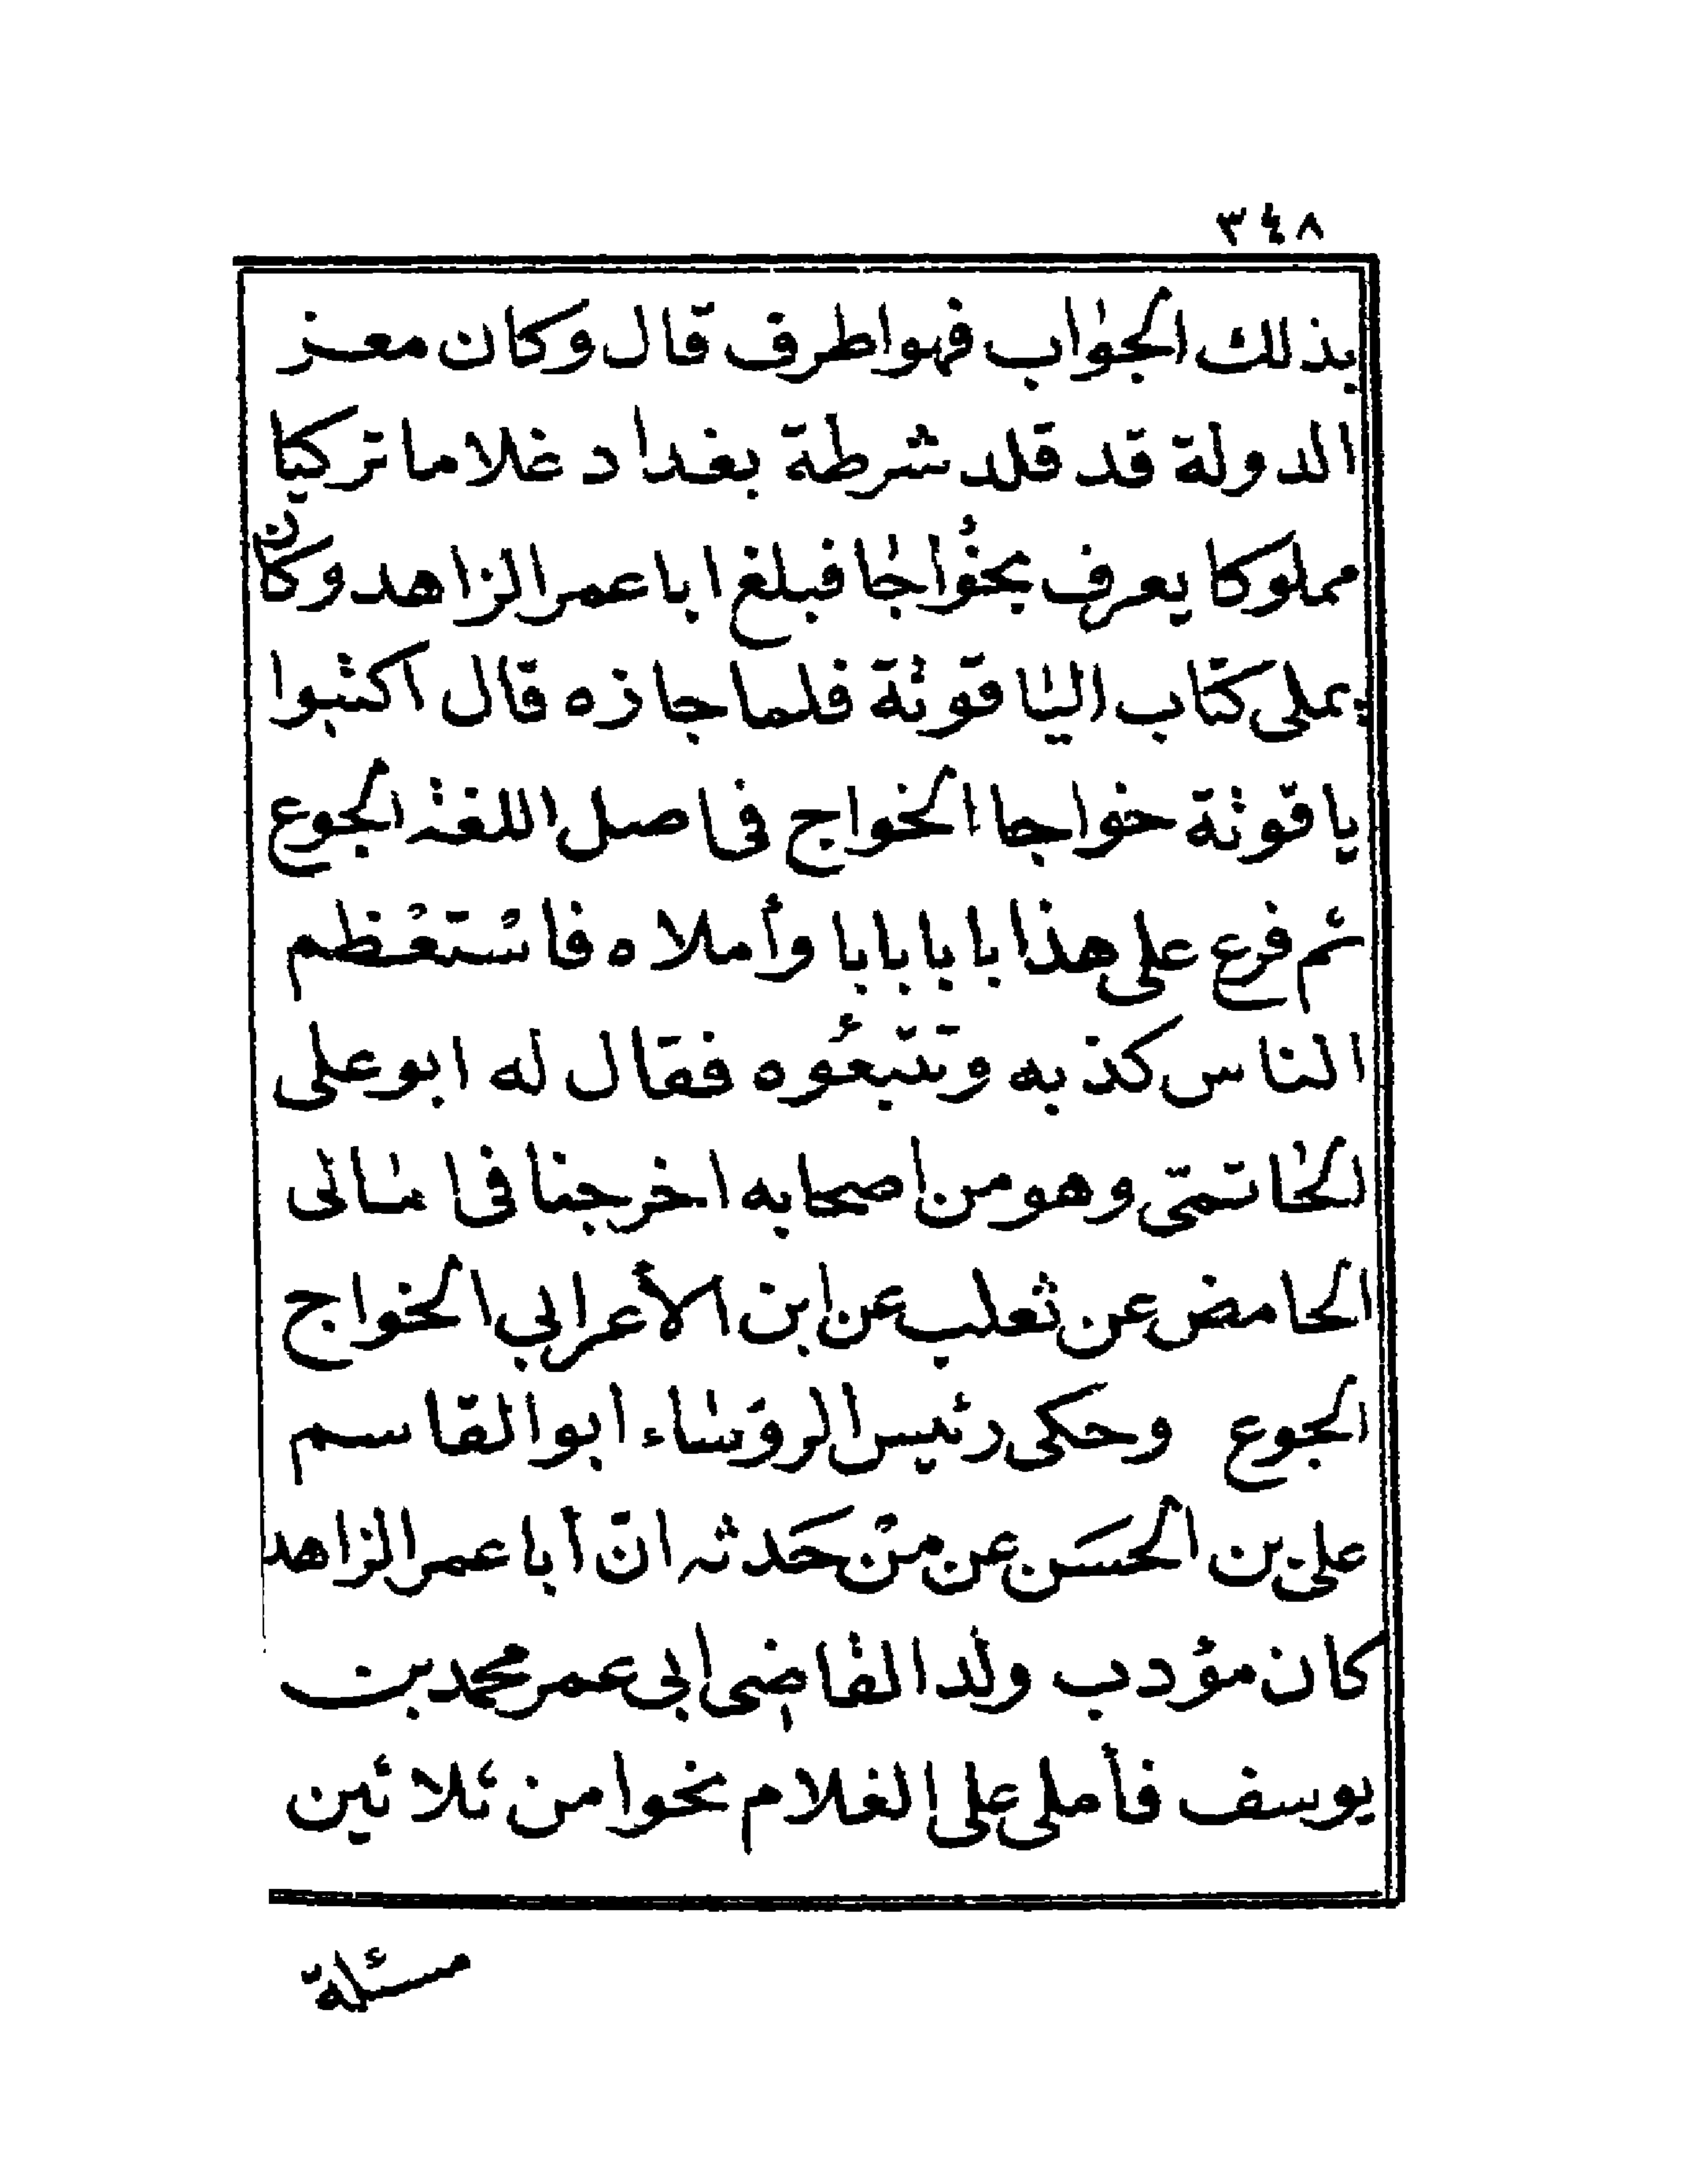 ٣٤٨
بذلك الجواب فهو اطرف قال وكان معز
الدولة قد قلد شرطة بغداد غلاما تركيا
مملوكا يعرف بخُواجا فبلغ ابا عمر الزاهد وكان
يملى كتاب الياقوتة فلما جازه قال اكتبوا
ياقوتة خواجا الخواج فى اصل اللغة الجوع
ثم فرع على هذا بابا بابا وأملاه فاسْتعْظم
الناس كذبه وتتبّعُوه فقال له ابو على
الحاتمىّ وهو من اصحابه اخرجنا فى امالى
الحامض عن ثعلب عن ابن الأعرابي الخواج
الجوع وحكى رئيس الرؤساء ابو القاسم
على بن الحسَن عن منْ حَدثه انّ أبا عمر الزاهد
كان مؤدب ولد القاضى ابى عمر محمد بن
يوسف فأملى على الغلام نحوا من ثلاثين
مسئلة